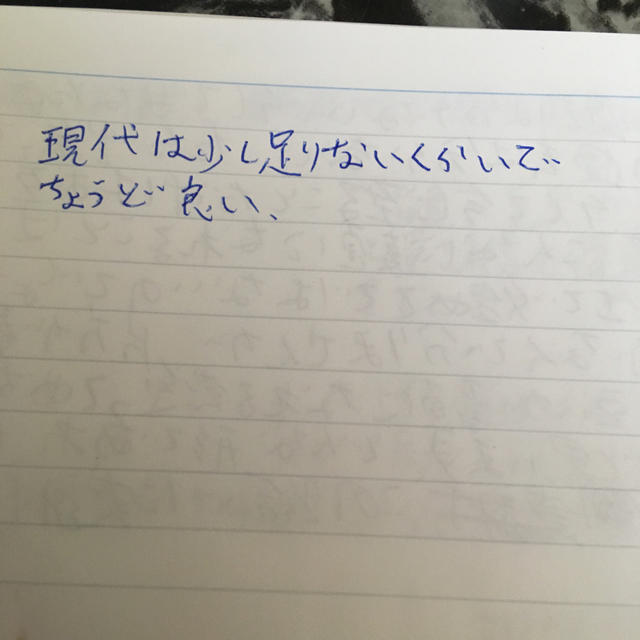 現代は少し足りないくらいで
ちょうど良い、